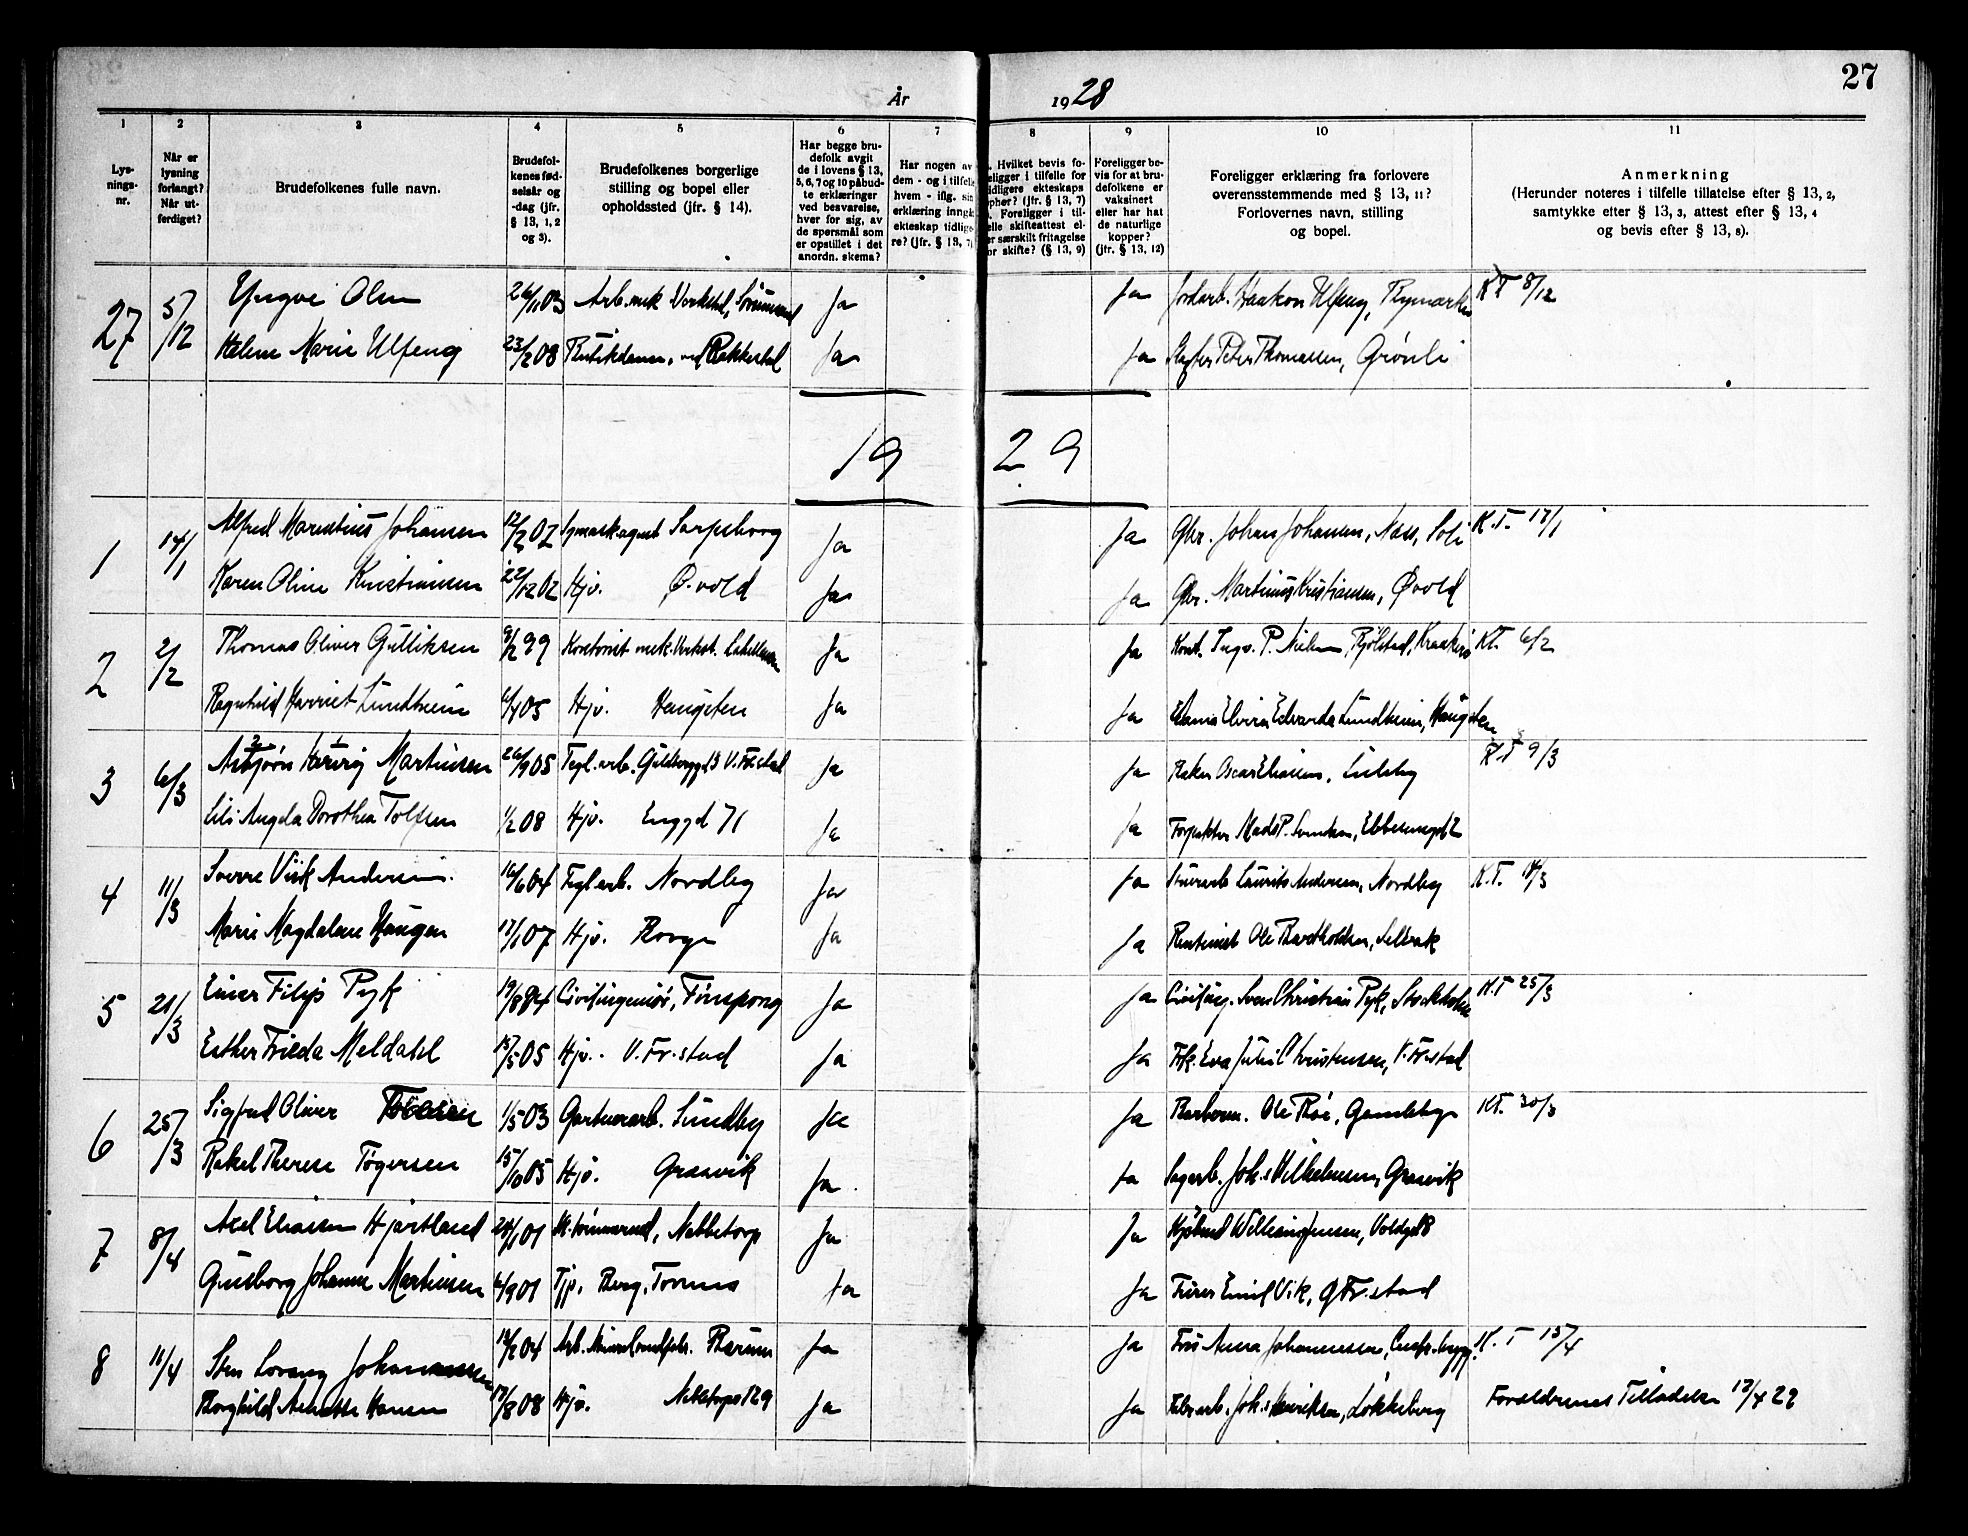 27
År 1928
1 2 3 4 5 6 7 8 9 10 11
Lys-
nings-
nr.
Når er
lysning
forlangt?
Når ut-
ferdiget?
Brudefolkenes fulle navn.
Brudefol-
kenes fød-
selsår og
-dag (jfr.
§ 13, 1, 2
og 3).
Brudefolkenes borgerlige
stilling og bopel eller
opholdssted (jfr. § 14).
Har begge bru-
defolk avgit
de i lovens § 13,
5, 6, 7 og 10 påbud-
te erklæringer
ved besvarelse,
hver for sig, av
de spørsmål som
er opstillet i det
anordn. skema?
Har nogen av
dem - og i tilfelle
hvem - iflg. sin
erklæring inngå
ekteskap tidlige
re? (jfr. § 13, 7)
. Hvilket bevis fo-
religger i tilfelle for
tidligere ekteskaps
ophør? (jfr. § 13, 7)
. Foreligger i til-
elle skifteattest el-
er særskilt fritagelse
or skifte? (§ 13, 9)
Foreligger be-
vis for at bru-
defolkene er
vaksinert
eller har hat
de naturlige
kopper?
(jfr. § 13, 12)
Foreligger erklæring fra forlovere
overensstemmende med § 13, 11?
Forlovernes navn, stilling
og bopel.
Anmerkning
(Herunder noteres i tilfelle tillatelse efter § 13, 2,
samtykke efter § 13, 3, attest efter § 13, 4
og bevis efter § 13, 8).
27 5/12 Yngve Olsen 26/11 03 Arb. mek Verksted, Ja Ja Haakon Ulfeng, K.T 8/12
Helene Marie Ulfeng 23/2 08 Rakkestad Ja Ja Peter Thomassen, Grønli
19 29
1 14/1 Alfred Marentius Johansen 12/2 02 Symask.agent Sarpsborg Ja Ja Gbr. Johan Johansen, Næss, Soli K.T. 17/1
Karen Oline Kristiansen 22/12 02 Hjv. Ø.vold Ja Ja Gbr. Martinius Kristiansen, Øvold
2 2/2 Thomas Oliver Gulliksen 9/2 99 Kontorist mek. Verkst. Ja Ja Kont. Ingv. P. Nielsen, KT. 6/2
Ragnhild Harriet Lundheim 6/4 05 Hjv. Haugsten Ja Ja Elvira Edvarda Lundheim, Haugsten
3 6/3 Asbjørn Henrig Martinsen 26/9 05 Tegl.arb. V. Fr.stad Ja Ja Baker Oscar Eliassen, Lisleby K.T 9/3
Lili Angela Dorothea Tollfsen 1/2 08 Hjv. Enggd 71 Ja Ja Mads P. Svendsen,
4 11/3 Sverre Viik Andersen. 16/6 04 Tegl.arb. Nordby Ja Ja Laurits Andersen, Nordby K.T. 18/3
Marie Magdalene Haugen 17/1 07 Hjv. Borge Ja Ja Ole Bartholdsen, Selbak
5 21/3 Einar Filip Pyk 19/8 84 Civilingeniør, Finspong Ja Ja Civiling. Sven Christian Pyk, Stockholm K.T 25/3
Esther Frieda Meldahl 15/5 05 Hjv. V. Fr.stad Ja Ja Frk. Eva Juliel Christensen, V. Fr.stad
6 25/3 Sigfred Oliver 1/5 03 Gartnerarb. Sundby Ja Ja Ole Roe, Gamlebyn KT. 30/3
Rakel Therese Tøgersen 15/10 05 Hjv. Græsvik Ja Ja Sagarb. Joh.s Vilhelmsen, Græsvik
7 8/4 Axel Eliassen Hjartland 24/1 01 Nabbetorp Ja Ja William Jensen, Voldgd 8
Gunborg Johanne Martinsen 6/9 01 Tjp. Berg, Torsnes Ja Ja Furer Emil Vik, G Fr.stad
8 11/4 Sten Lorang Johannessen 14/2 04 Ja Ja Fru Anna Johannessen, K.T 15/4
Borghild Annette Hansen 17/8 08 Hjv. Nabbetorp 129 Ja Ja Fabr.arb. Joh.s Henriksen, Løkkeberg Foreldrenes Tilladelse 17/4 29